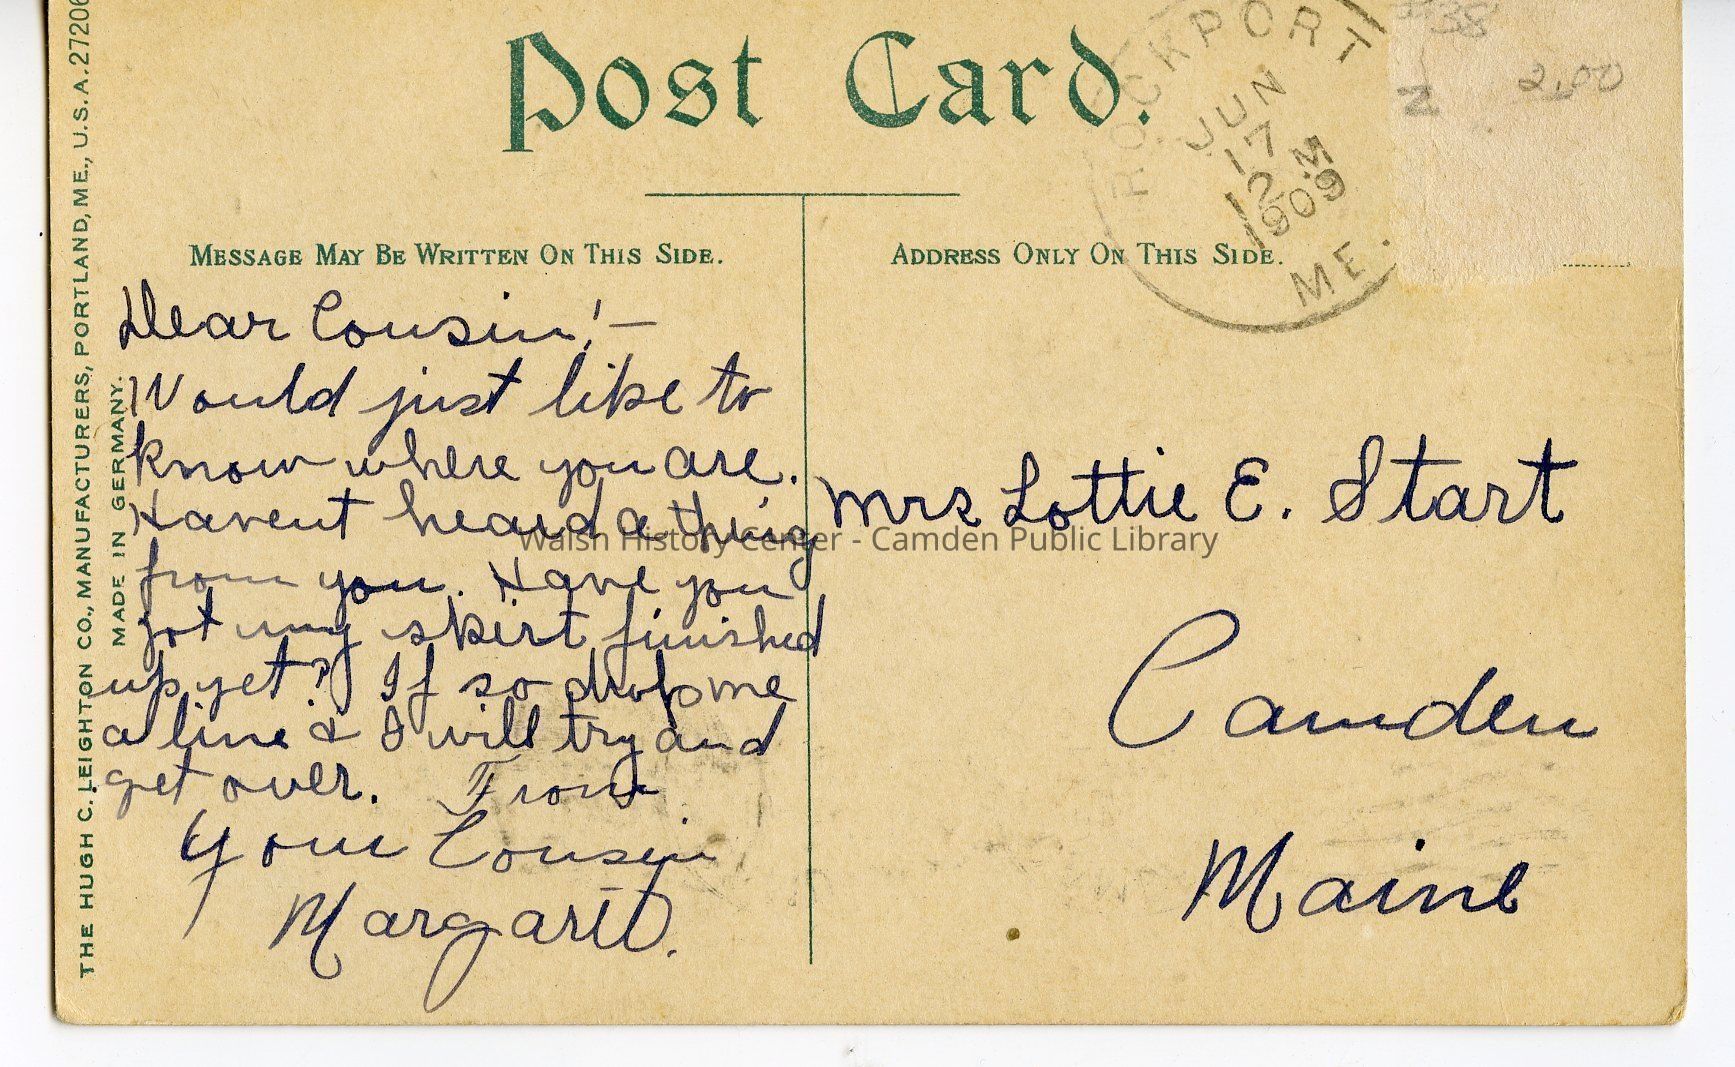 Post Card.
ROCKPORT
JUN
17
12 M
1909
ME.
38
N
2.00
THE HUGH C. LEIGHTON CO., MANUFACTURERS, PORTLAND, ME., U.S.A. 27206
MADE IN GERMANY.
MESSAGE MAY BE WRITTEN ON THIS SIDE.
Dear Cousin!—
Would just like to
know where you are.
Havent heard a thing
from you. Have you
got my skirt finished
up yet? If so drop me
a line & I will try and
get over. From
Your Cousin
Margaret.
ADDRESS ONLY ON THIS SIDE.
Mrs Lottie E. Start
Camden
Maine
Walsh History Center - Camden Public Library